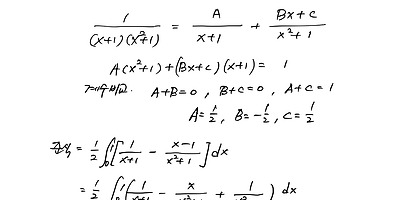 1/((x+1)(x²+1)) = A/(x+1) + (Bx+c)/(x²+1)
A(x²+1)+(Bx+c)(x+1) = 1
A+B=0 , B+c=0 , A+c=1
A=1/2, B=-1/2, c=1/2
= 1/2 ∫₀¹[1/(x+1) - (x-1)/(x²+1)]dx
= 1/2 ∫₀¹(1/(x+1) - x/(x²+1) + ) dx